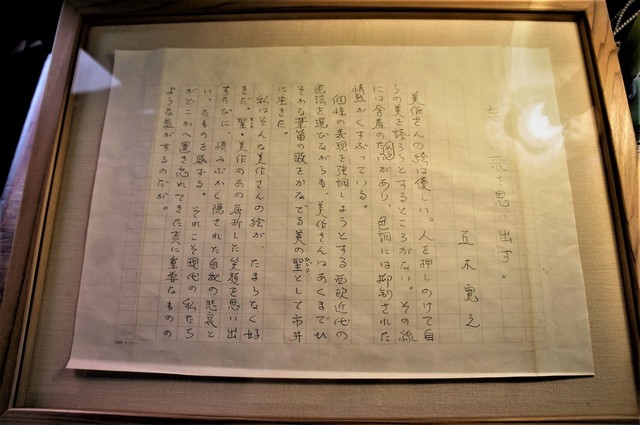 歌を思い出す。
五木寛之
美作さんの絵は優しい。人を押しのけて自
らの美を語ろうとするところがない。その線
には含羞の気品があり、色調には抑制された
情熱がくすぶっている。
個性の表現を強調しようとする西欧近代の
画法を選びながらも、美作さんはあくまでひ
そかな草笛の歌をかなでる美の聖として市井
に生きた。
私はそんな美作さんの絵が、たまらなく好
きだ。聖・美作のあの屈折した笑顔を思い出
すたびに、慎みぶかく隠された自我の悲哀と
いったものを感ずる。それこそ現代の私たち
がどこかへ置き忘れてきた真に重要なものの
ような気がするのだが。